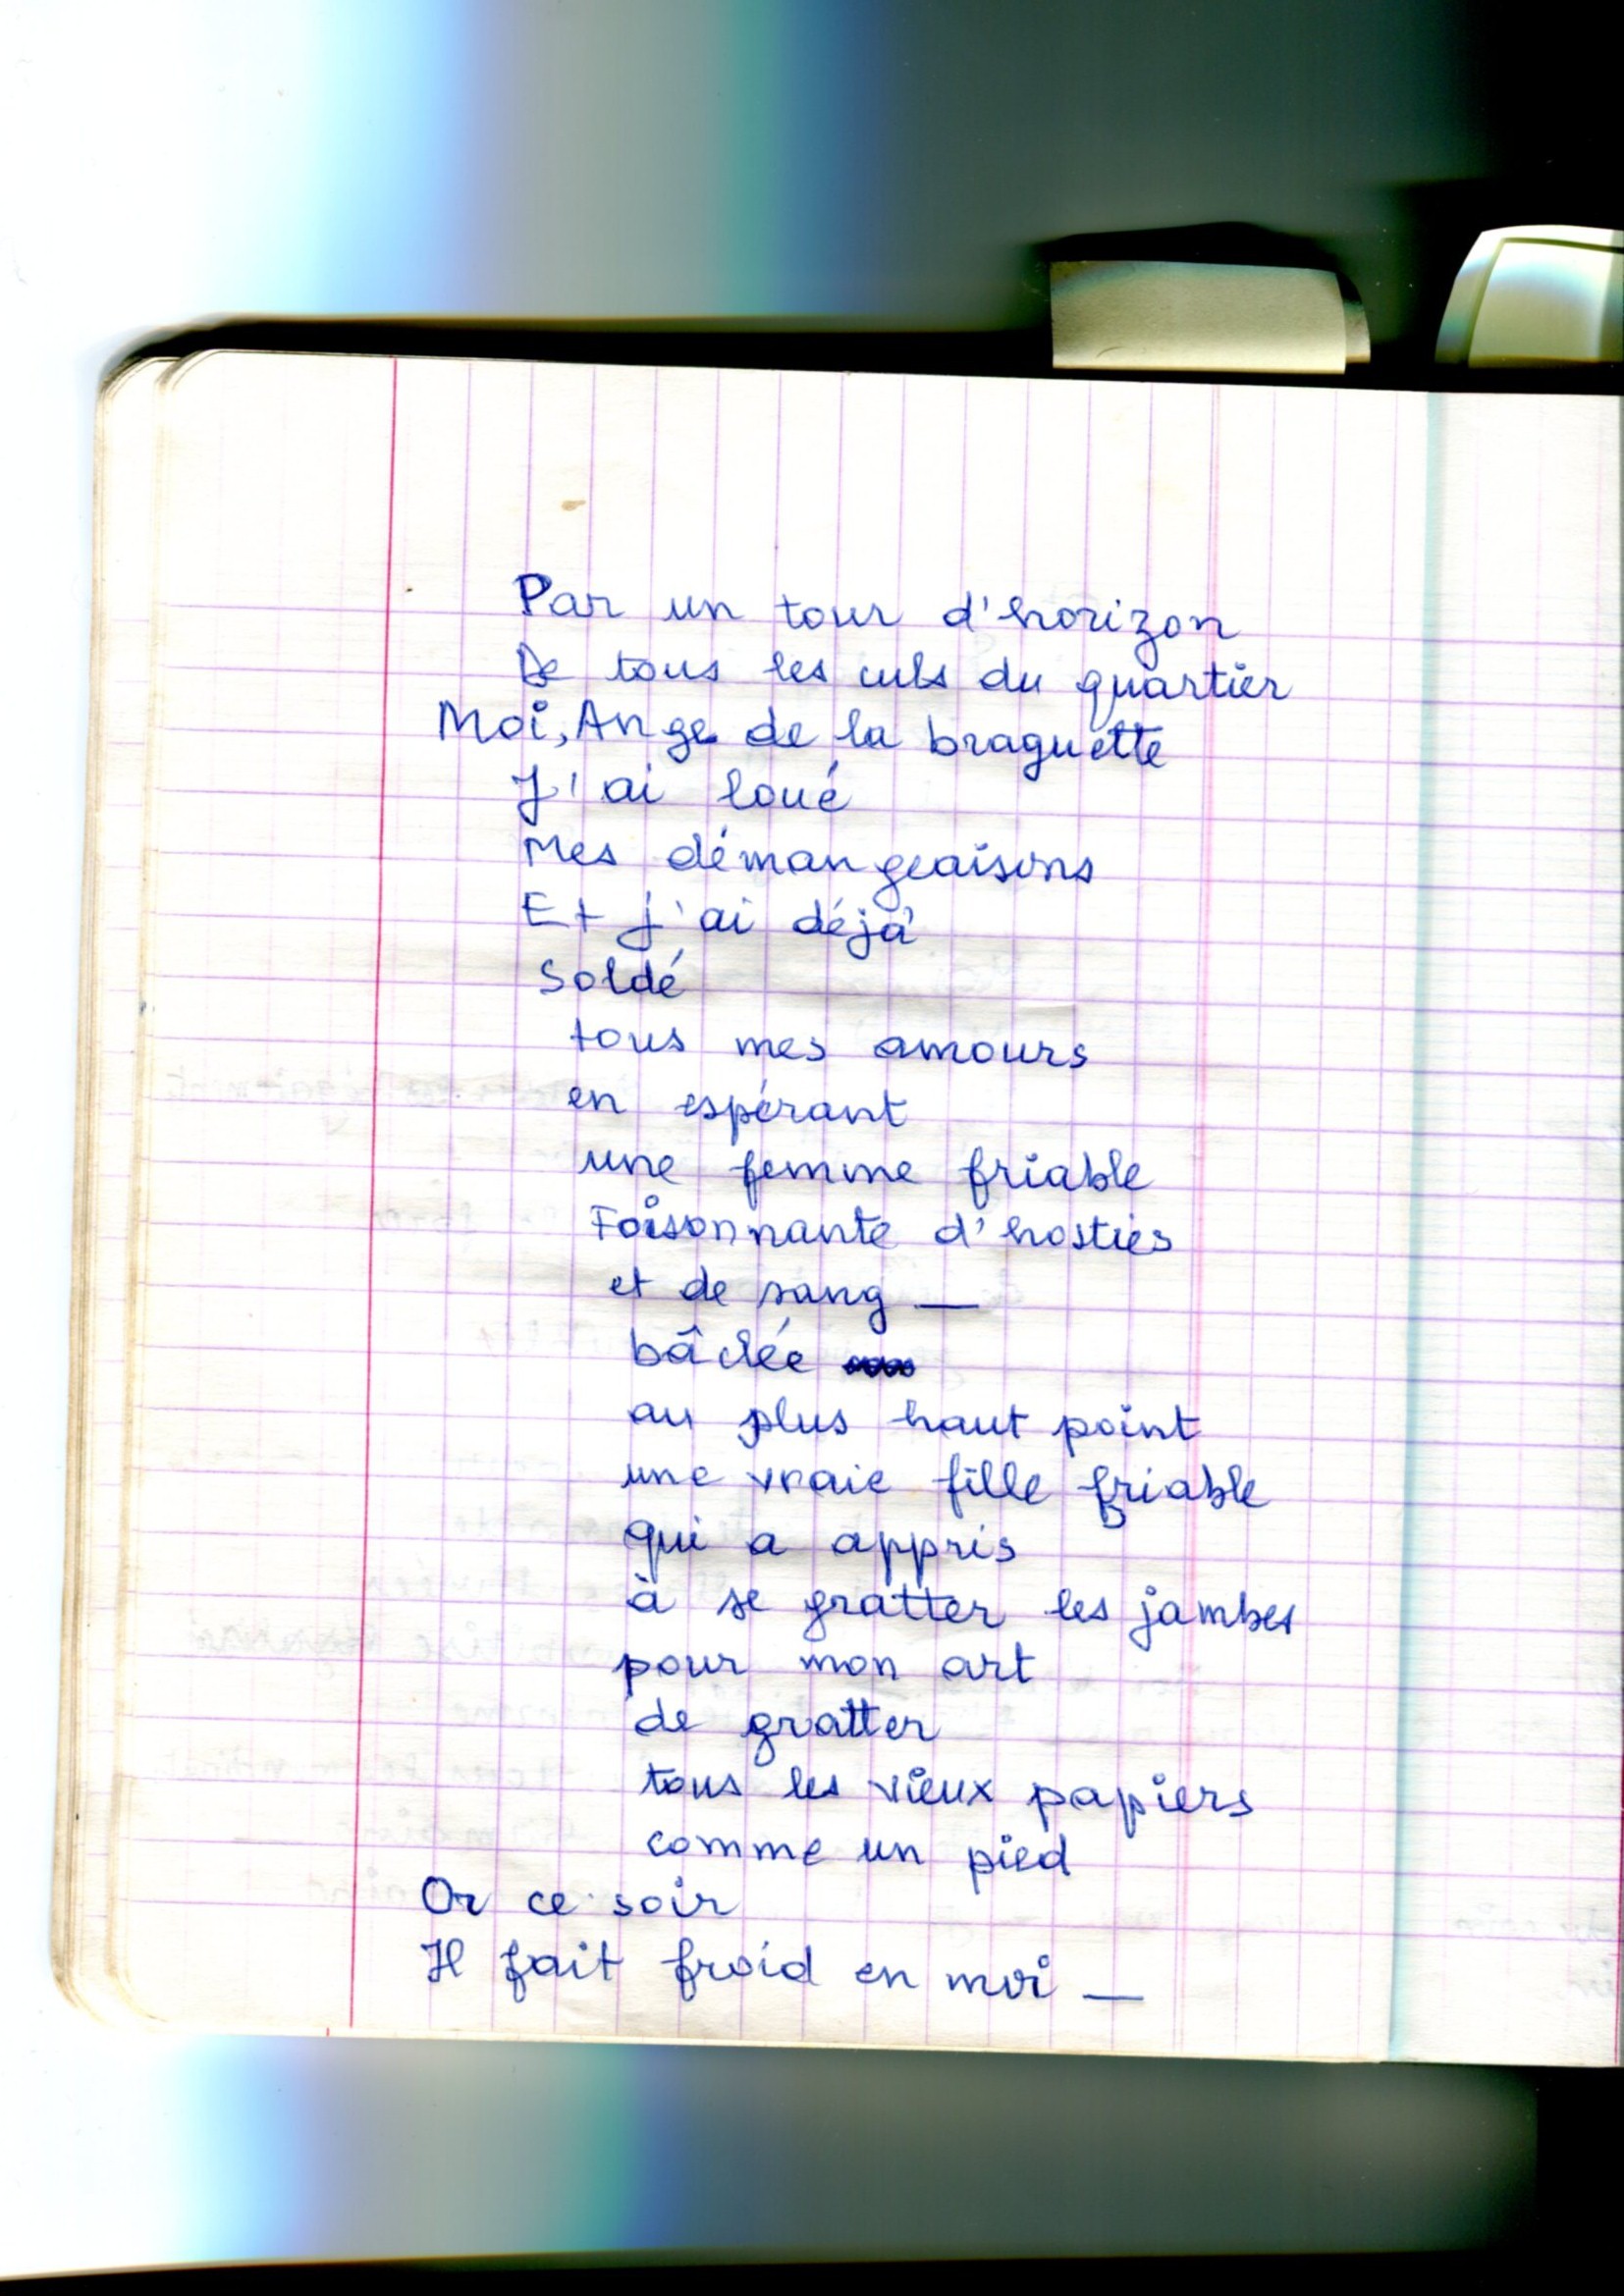 Par un tour d'horizon
De tous les culs du quartier
Moi, Ange de la braguette
J'ai loué
Mes démangeaisons
Et j'ai déjà
Soldé
tous mes amours
en espérant
une femme friable
Foisonnante d'hosties
et de sang —
bâclée
au plus haut point
une vraie fille friable
qui a appris
à se gratter les jambes
pour mon art
de gratter
tous les vieux papiers
comme un pied
Or ce soir
Il fait froid en moi —